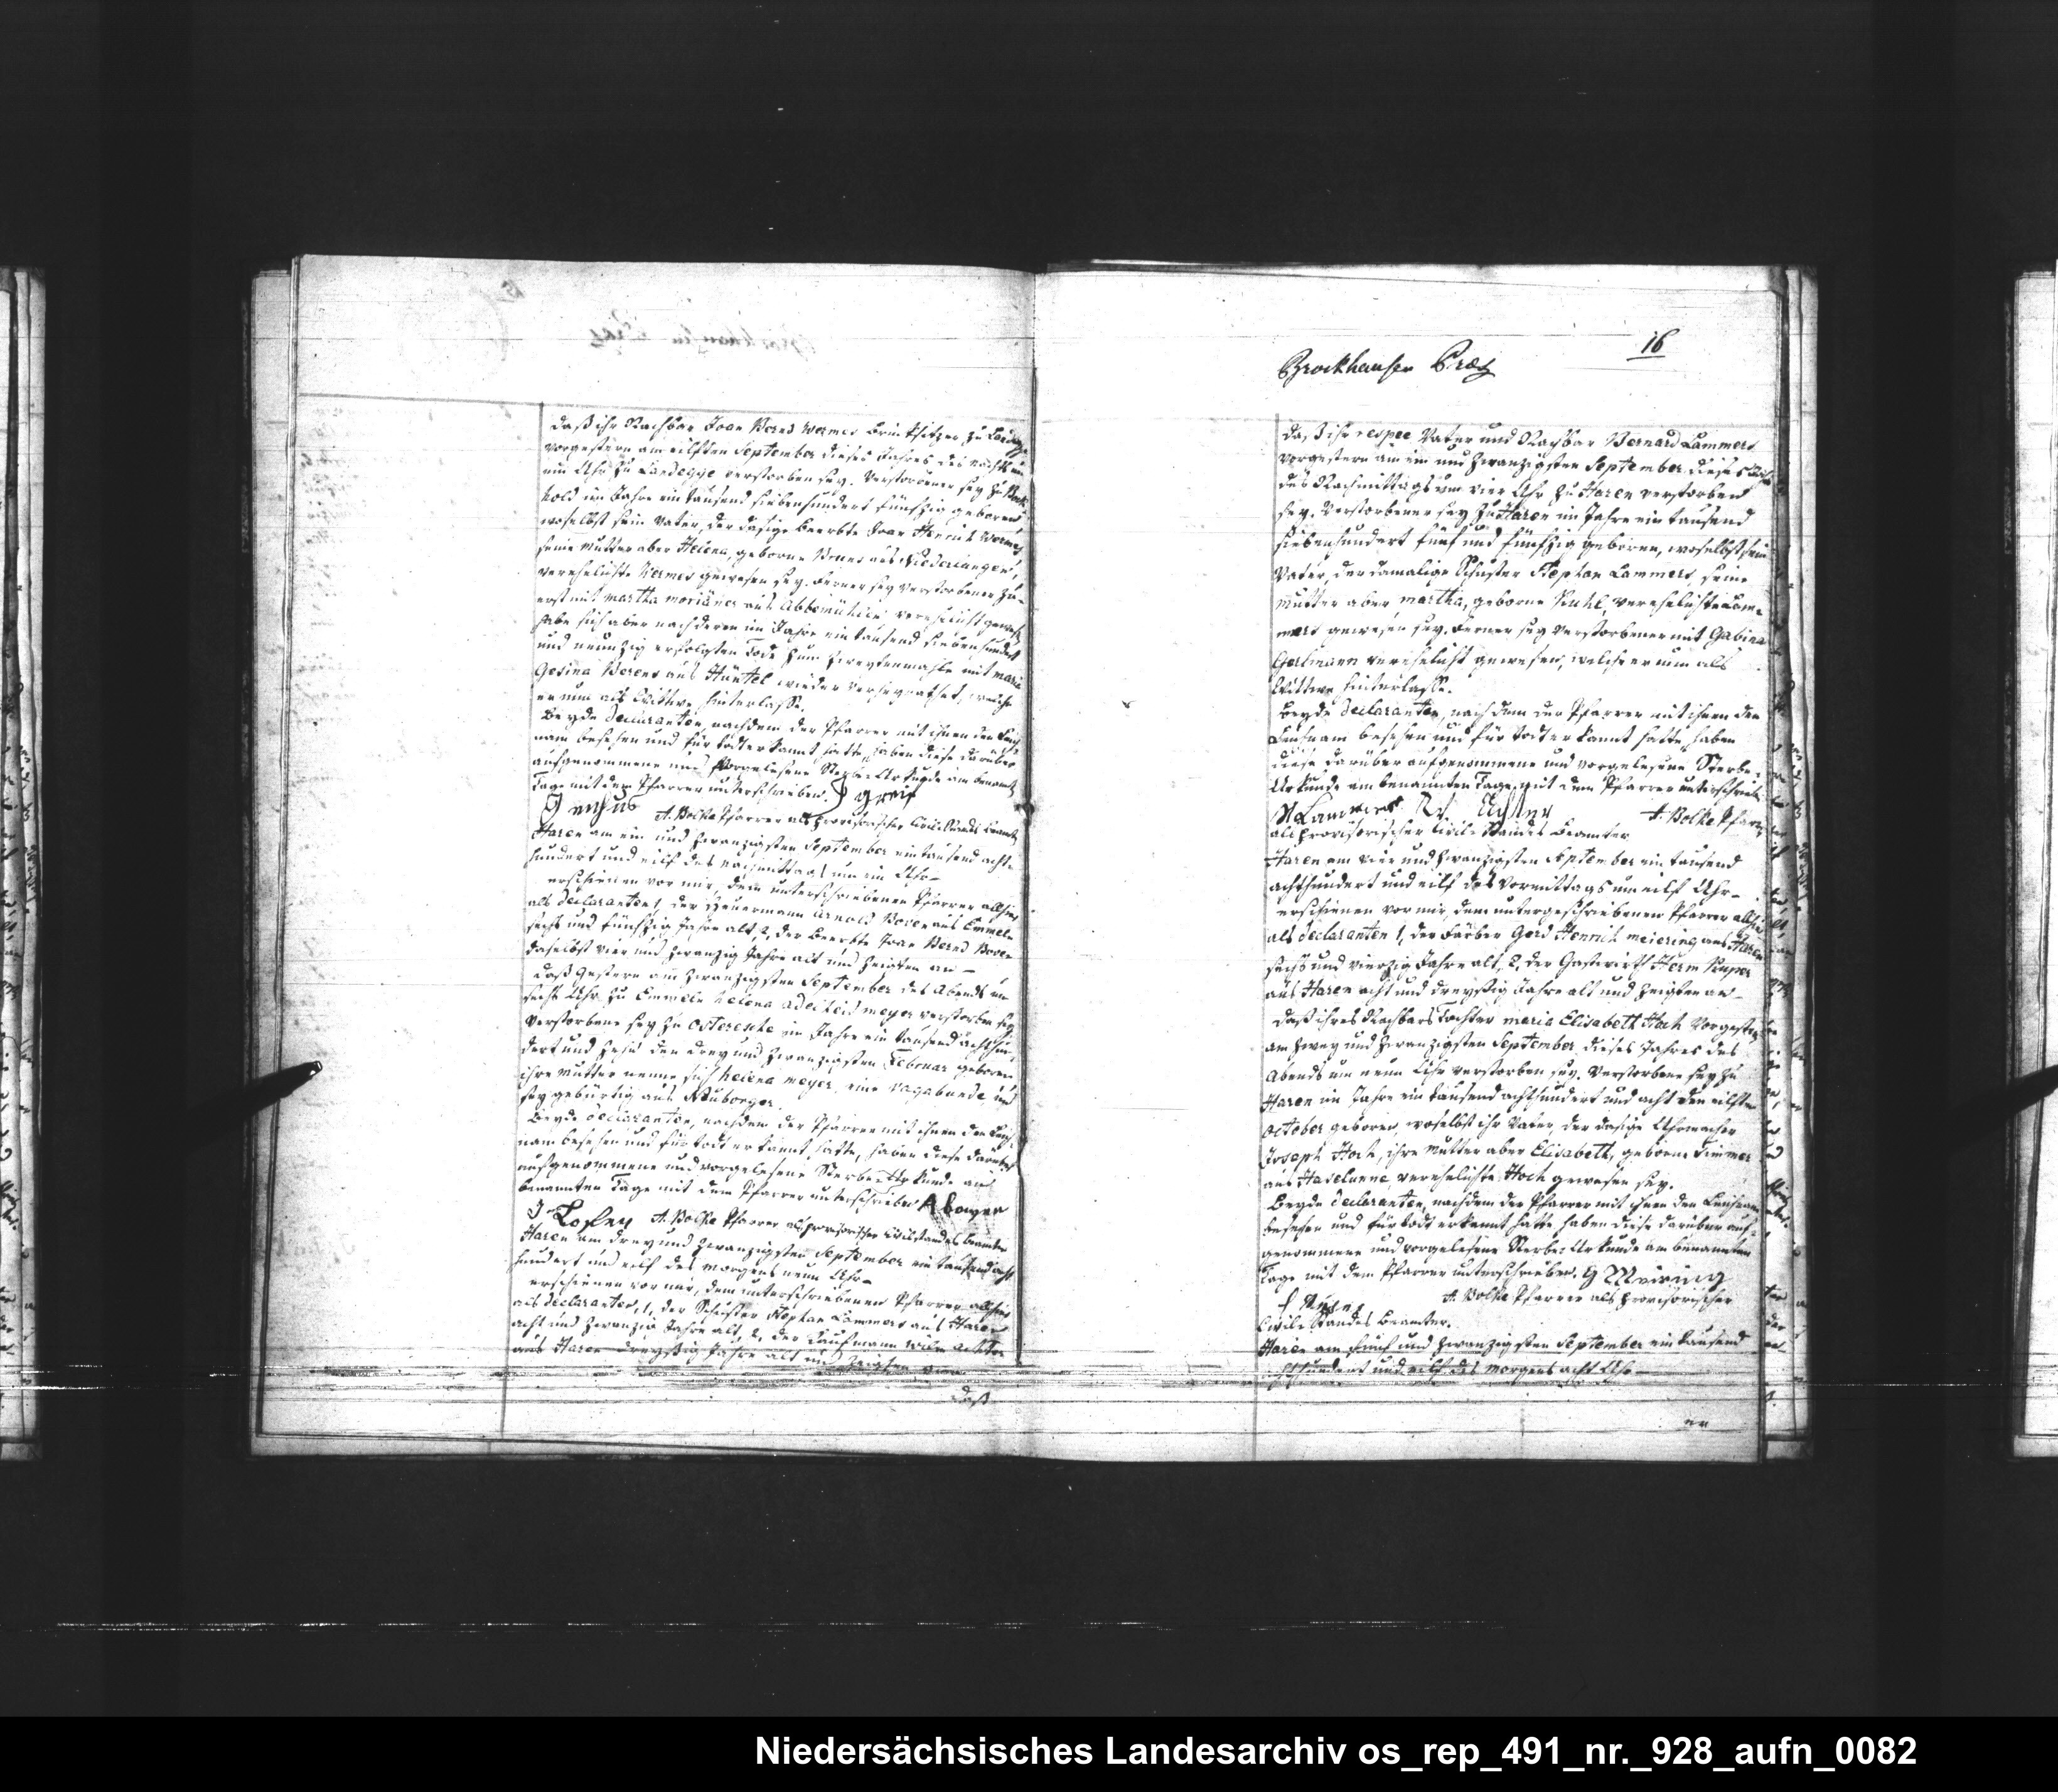 daß ihr Nachbar Joan Bernd Wermes Brinksitzer zu
vorgestern am eilften September dieses Jahres des Nachts um
ein Uhr zu Landegge verstorben sey. Verstorbener sey zu
hold im Jahre ein tausend siebenhundert fünfzig geboren
woselbst sein Vater, der dasige Beerbte Joan Henrich Wermes
seine Mutter aber Helena, geborne aus Niederlangen,
verehelichte Wermes gewesen sey. Ferner sey Verstorbener zu-
erst mit Martha aus verehelicht gewesen
habe sich aber nach deren im Jahre ein tausend siebenhundert
und neunzig erfolgten Tode zum zweytenmahle mit Maria
Gesina Berens aus Hüntel wieder verheyrathet, welche
er nun als Wittwe hinterlasse.
Beyde Declaranten, nachdem der Pfarrer mit ihnen den Leich-
nam besehen und für todt erkannt hatte, haben diese darüber
aufgenommene und vorgelesene Sterbe-Urkunde am benannten
Tage mit dem Pfarrer unterschrieben. J greif
A. Bolke Pfarrer als provisorischer Civil-Standes Beamter
Haren am ein und zwanzigsten September eintausend acht-
hundert und eilf des Nachmittags um ein Uhr-
erschienen vor mir, dem unterschriebenen Pfarrer allhier
als Declaranten 1, der Heuermann Arnold Boven aus Emmeln
sechs und fünfzig Jahre alt, 2, der Beerbte Joan Bernd Boven
daselbst vier und zwanzig Jahre alt und zeigten an -
daß gestern am zwanzigsten September des Abends um
sechs Uhr zu Emmeln Helena Adelheid Meyer verstorben sey
Verstorbene sey zu Osteresche im Jahre ein tausend achthun-
dert und zehn den drey und zwanzigsten Februar geboren
ihre Mutter nenne sich Helena Meyer, eine Vagabunde und
sey gebürtig aus Neuborger.
Beyde Declaranten, nachdem der Pfarrer mit ihnen den Leich-
nam besehen und für todt erkannt hatte, haben diese darüber
aufgenommene und vorgelesene Sterbe-Urkunde am
benannten Tage mit dem Pfarrer unterschrieben A bower
A. Bolke Pfarrer als provisorischer Civilstandes Beamter
Haren am drey und zwanzigsten September ein tausend acht
hundert und eilf des Morgens neun Uhr-
erschienen vor mir, dem unterschriebenen Pfarrer allhier
als Declaranten, 1, der Schuster Stephan Lammers aus Haren
acht und zwanzig Jahre alt, 2, der Kaufmann
aus Haren dreyßig Jahre alt und zeigten an
daß
16
Brockhausen Præs
daß ihr respee Vater und Nachbar Bernard Lammers
vorgestern am ein und zwanzigsten September dieses Jahres
des Nachmittags um vier Uhr zu Haren verstorben
sey. Verstorbener sey zu Haren im Jahre ein tausend
siebenhundert fünf und fünfzig geboren, woselbst sein
Vater, der damalige Schuster Stephan Lammers, seine
Mutter aber Martha, geborne Kuhl, verehelichte Lam-
mers gewesen sey. Ferner sey Verstorbener mit Gabina
verehelicht gewesen, welche er nun als
Wittwe hinterlasse.
Beyde Declaranten, nachdem der Pfarrer mit ihnen den
Leichnam besehen und für todt erkannt hatte, haben
diese darüber aufgenommene und vorgelesene Sterbe-
Urkunde am benannten Tage mit dem Pfarrer unterschrieb
Lammers A. Bolke Pfarrer
als provisorischer Civil-Standes Beamter
Haren am vier und zwanzigsten September ein tausend
achthundert und eilf des Vormittags um eilf Uhr-
erschienen vor mir, dem untergeschriebenen Pfarrer allhier
als Declaranten 1, der Färber Gerd Henrich Meiering aus Haren
sechs und vierzig Jahre alt, 2, der Gastwirth Herm Kuper
aus Haren acht und dreyßig Jahre alt und zeigten an-
daß ihres Nachbars Tochter Maria Elisabeth Hoch vorgestern
am zwey und zwanzigsten September dieses Jahres des
Abends um neun Uhr verstorben sey. Verstorbene sey zu
Haren im Jahre ein tausend achthundert und acht den eilften
October geboren, woselbst ihr Vater, der dasige Uhrmacher
Joseph Hoch, ihre Mutter aber Elisabeth, geborne Timmer
aus Haselunne, verehelichte Hoch gewesen sey.
Beyde Declaranten, nachdem der Pfarrer mit ihnen den Leichnam
besehen und für todt erkannt hatte, haben diese darüber auf-
genommene und vorgelesene Sterbe-Urkunde am benannten
Tage mit dem Pfarrer unterschrieben. G Meiring
A. Bolke Pfarrer als provisorischer
Civil-Standes Beamter.
Haren am fünf und zwanzigsten September ein tausend
achthundert und eilf des Morgens acht Uhr-
er
Niedersächsisches Landesarchiv os_rep_491_nr._928_aufn_0082